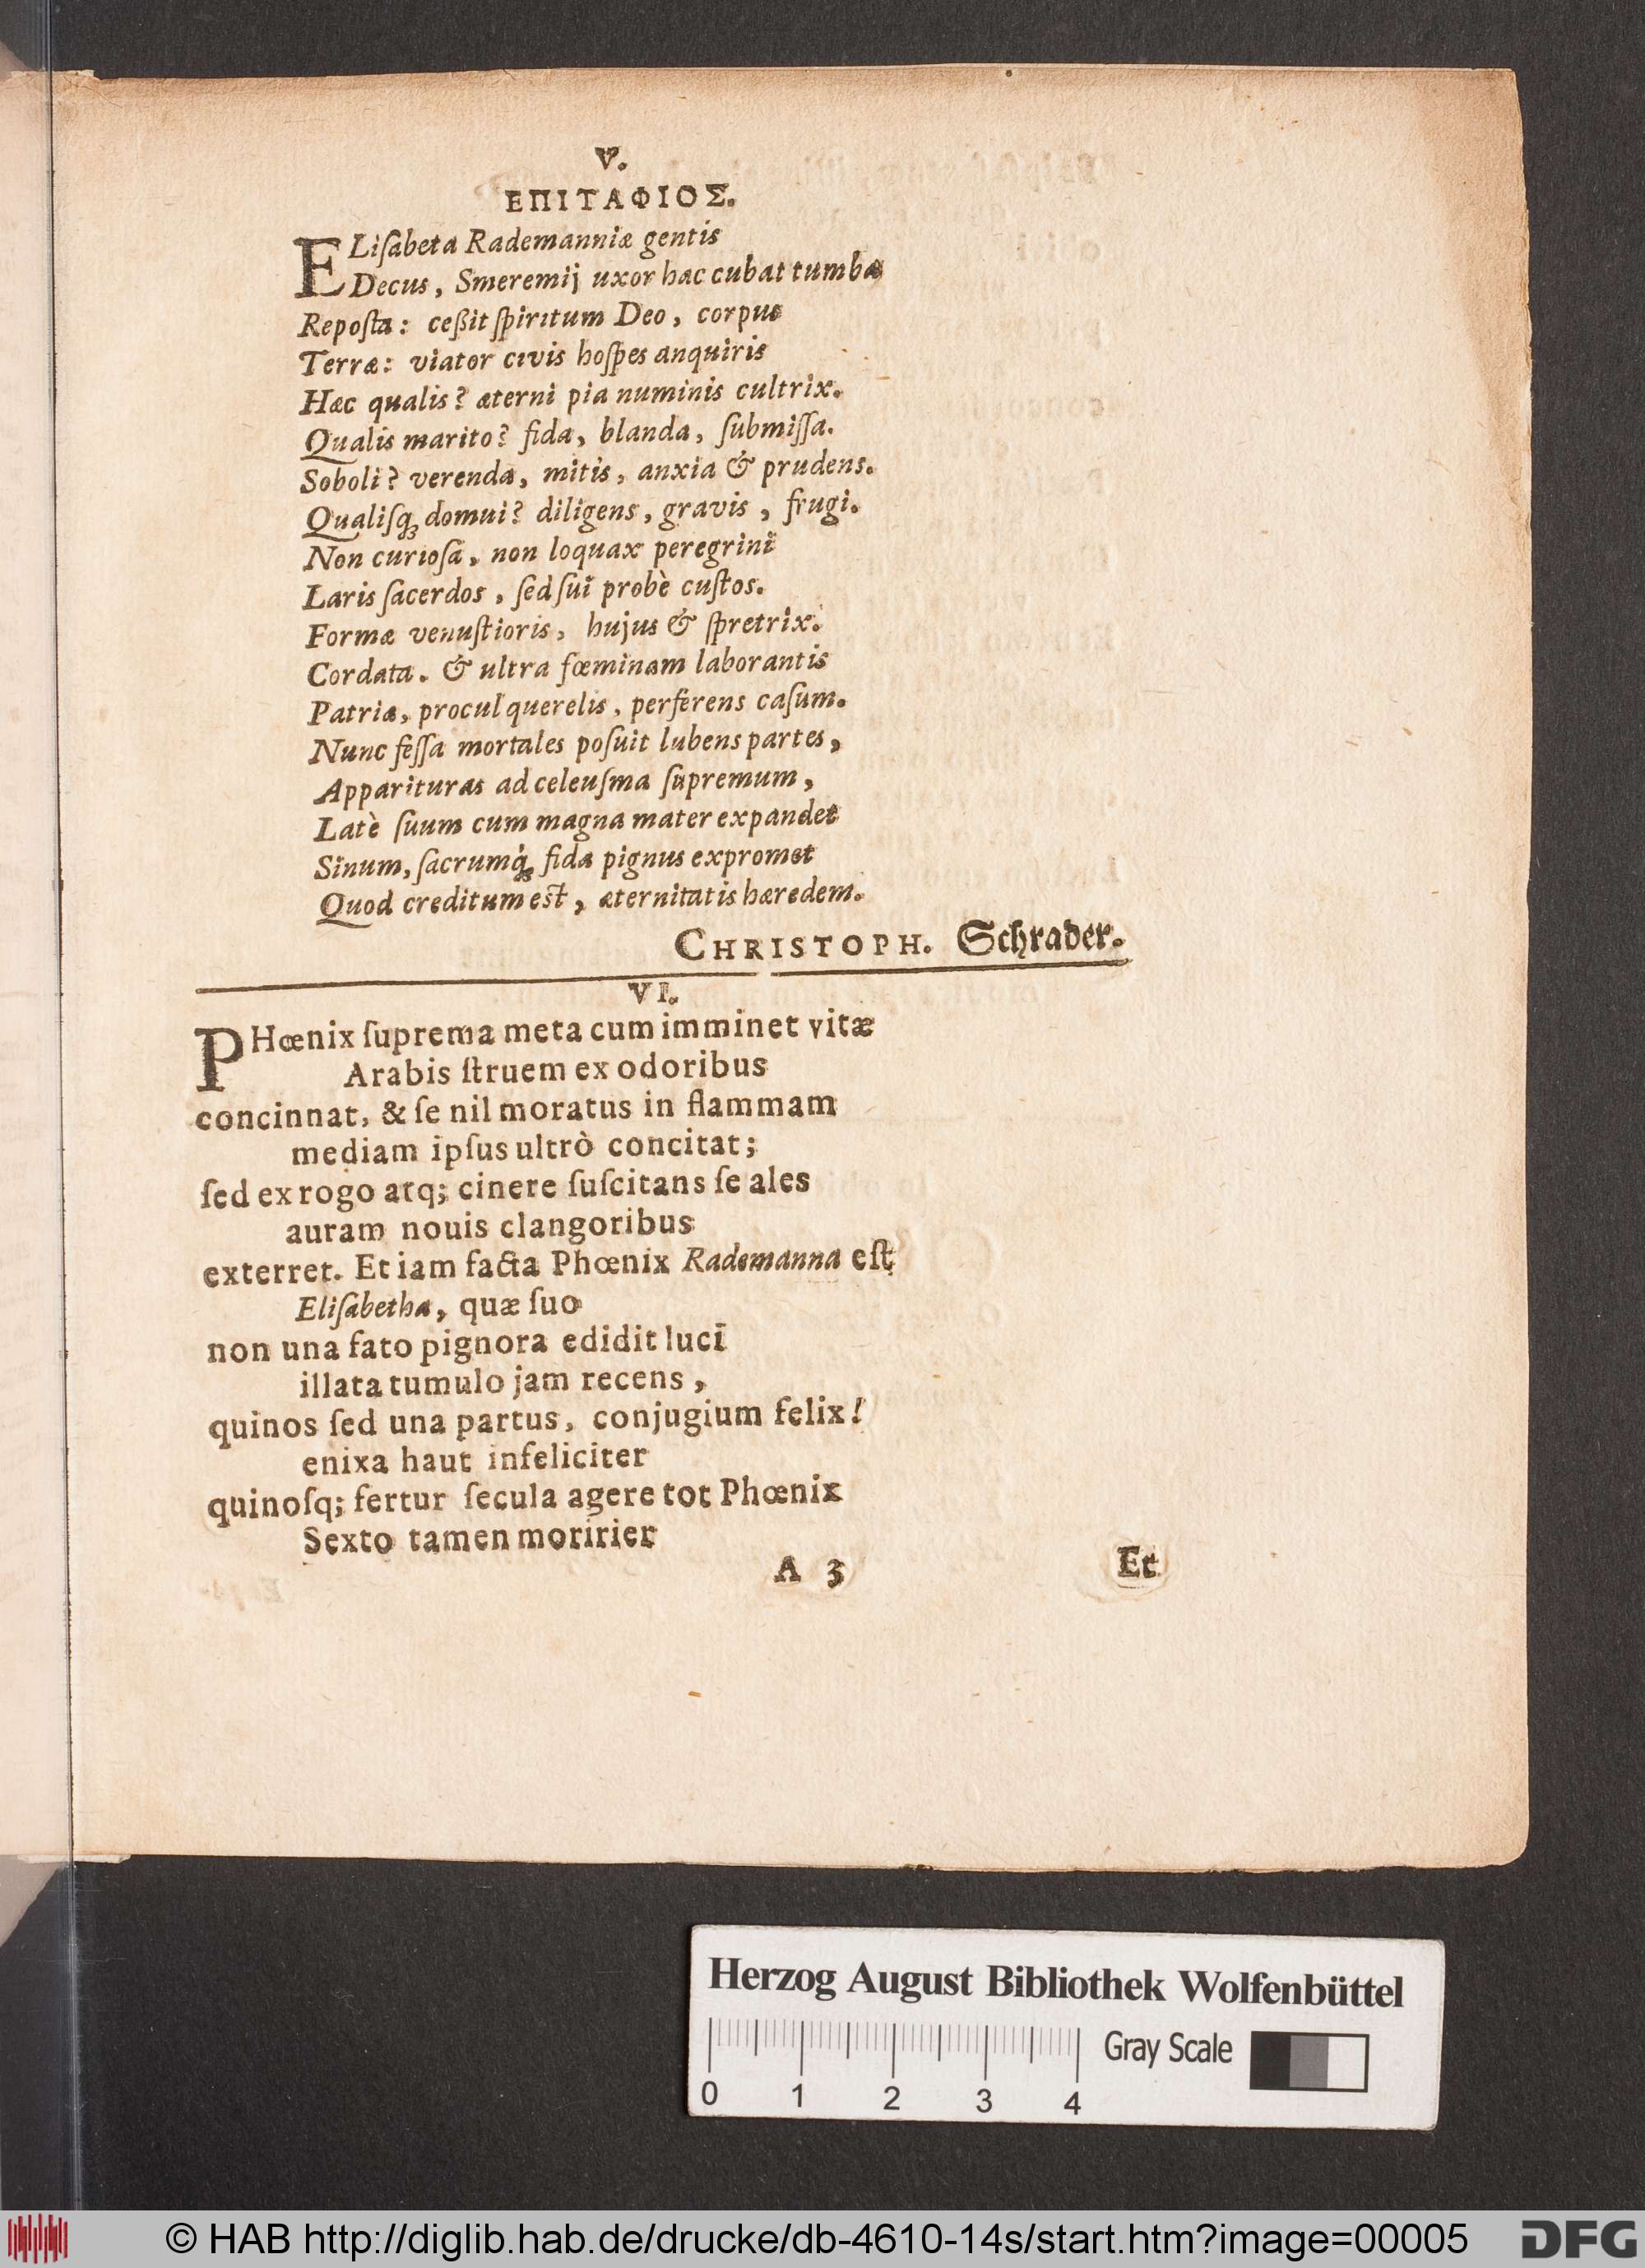 V.
ΕΠΙΤΑΦΙΟΣ.
ELiſabeta Rademanniæ gentis
Decus, Smeremij uxor hac cubat tumba
Repoſta: ceßit ſpiritum Deo, corpus
Terræ: viator civis hoſpes anquiris
Hæc qualis? æterni pia numinis cultrix.
Qualis marito? fida, blanda, ſubmiſſa.
Soboli? verenda, mitis, anxia & prudens.
Qualiſq; domui? diligens, gravis, frugi.
Non curioſa, non loquax peregrini
Laris ſacerdos, ſed ſui probè cuſtos.
Formæ venuſtioris, hujus & ſpretrix.
Cordata. & ultra fœminam laborantis
Patriæ, procul querelis, perferens caſum.
Nunc feſſa mortales poſuit lubens partes,
Apparituras ad celeuſma ſupremum,
Latè ſuum cum magna mater expandet
Sinum, ſacrumq́; fida pignus expromet
Quod creditum eſt, æternitatis hæredem.
CHRISTOPH. Schrader.
VI.
PHœnix ſuprema meta cum imminet vitæ
Arabis ſtruem ex odoribus
concinnat, & ſe nil moratus in flammam
mediam ipſus ultrò concitat;
ſed ex rogo atq; cinere ſuſcitans ſe ales
auram nouis clangoribus
exterret. Et iam facta Phœnix Rademanna eſt
Eliſabetha, quæ ſuo
non una fato pignora edidit luci
illata tumulo jam recens,
quinos ſed una partus, conjugium felix!
enixa haut infeliciter
quinoſq; fertur ſecula agere tot Phœnix
Sexto tamen moririer
A 3 Et
Herzog August Bibliothek Wolfenbüttel
Gray Scale
0 1 2 3 4
© HAB http://diglib.hab.de/drucke/db-4610-14s/start.htm?image=00005
DFG